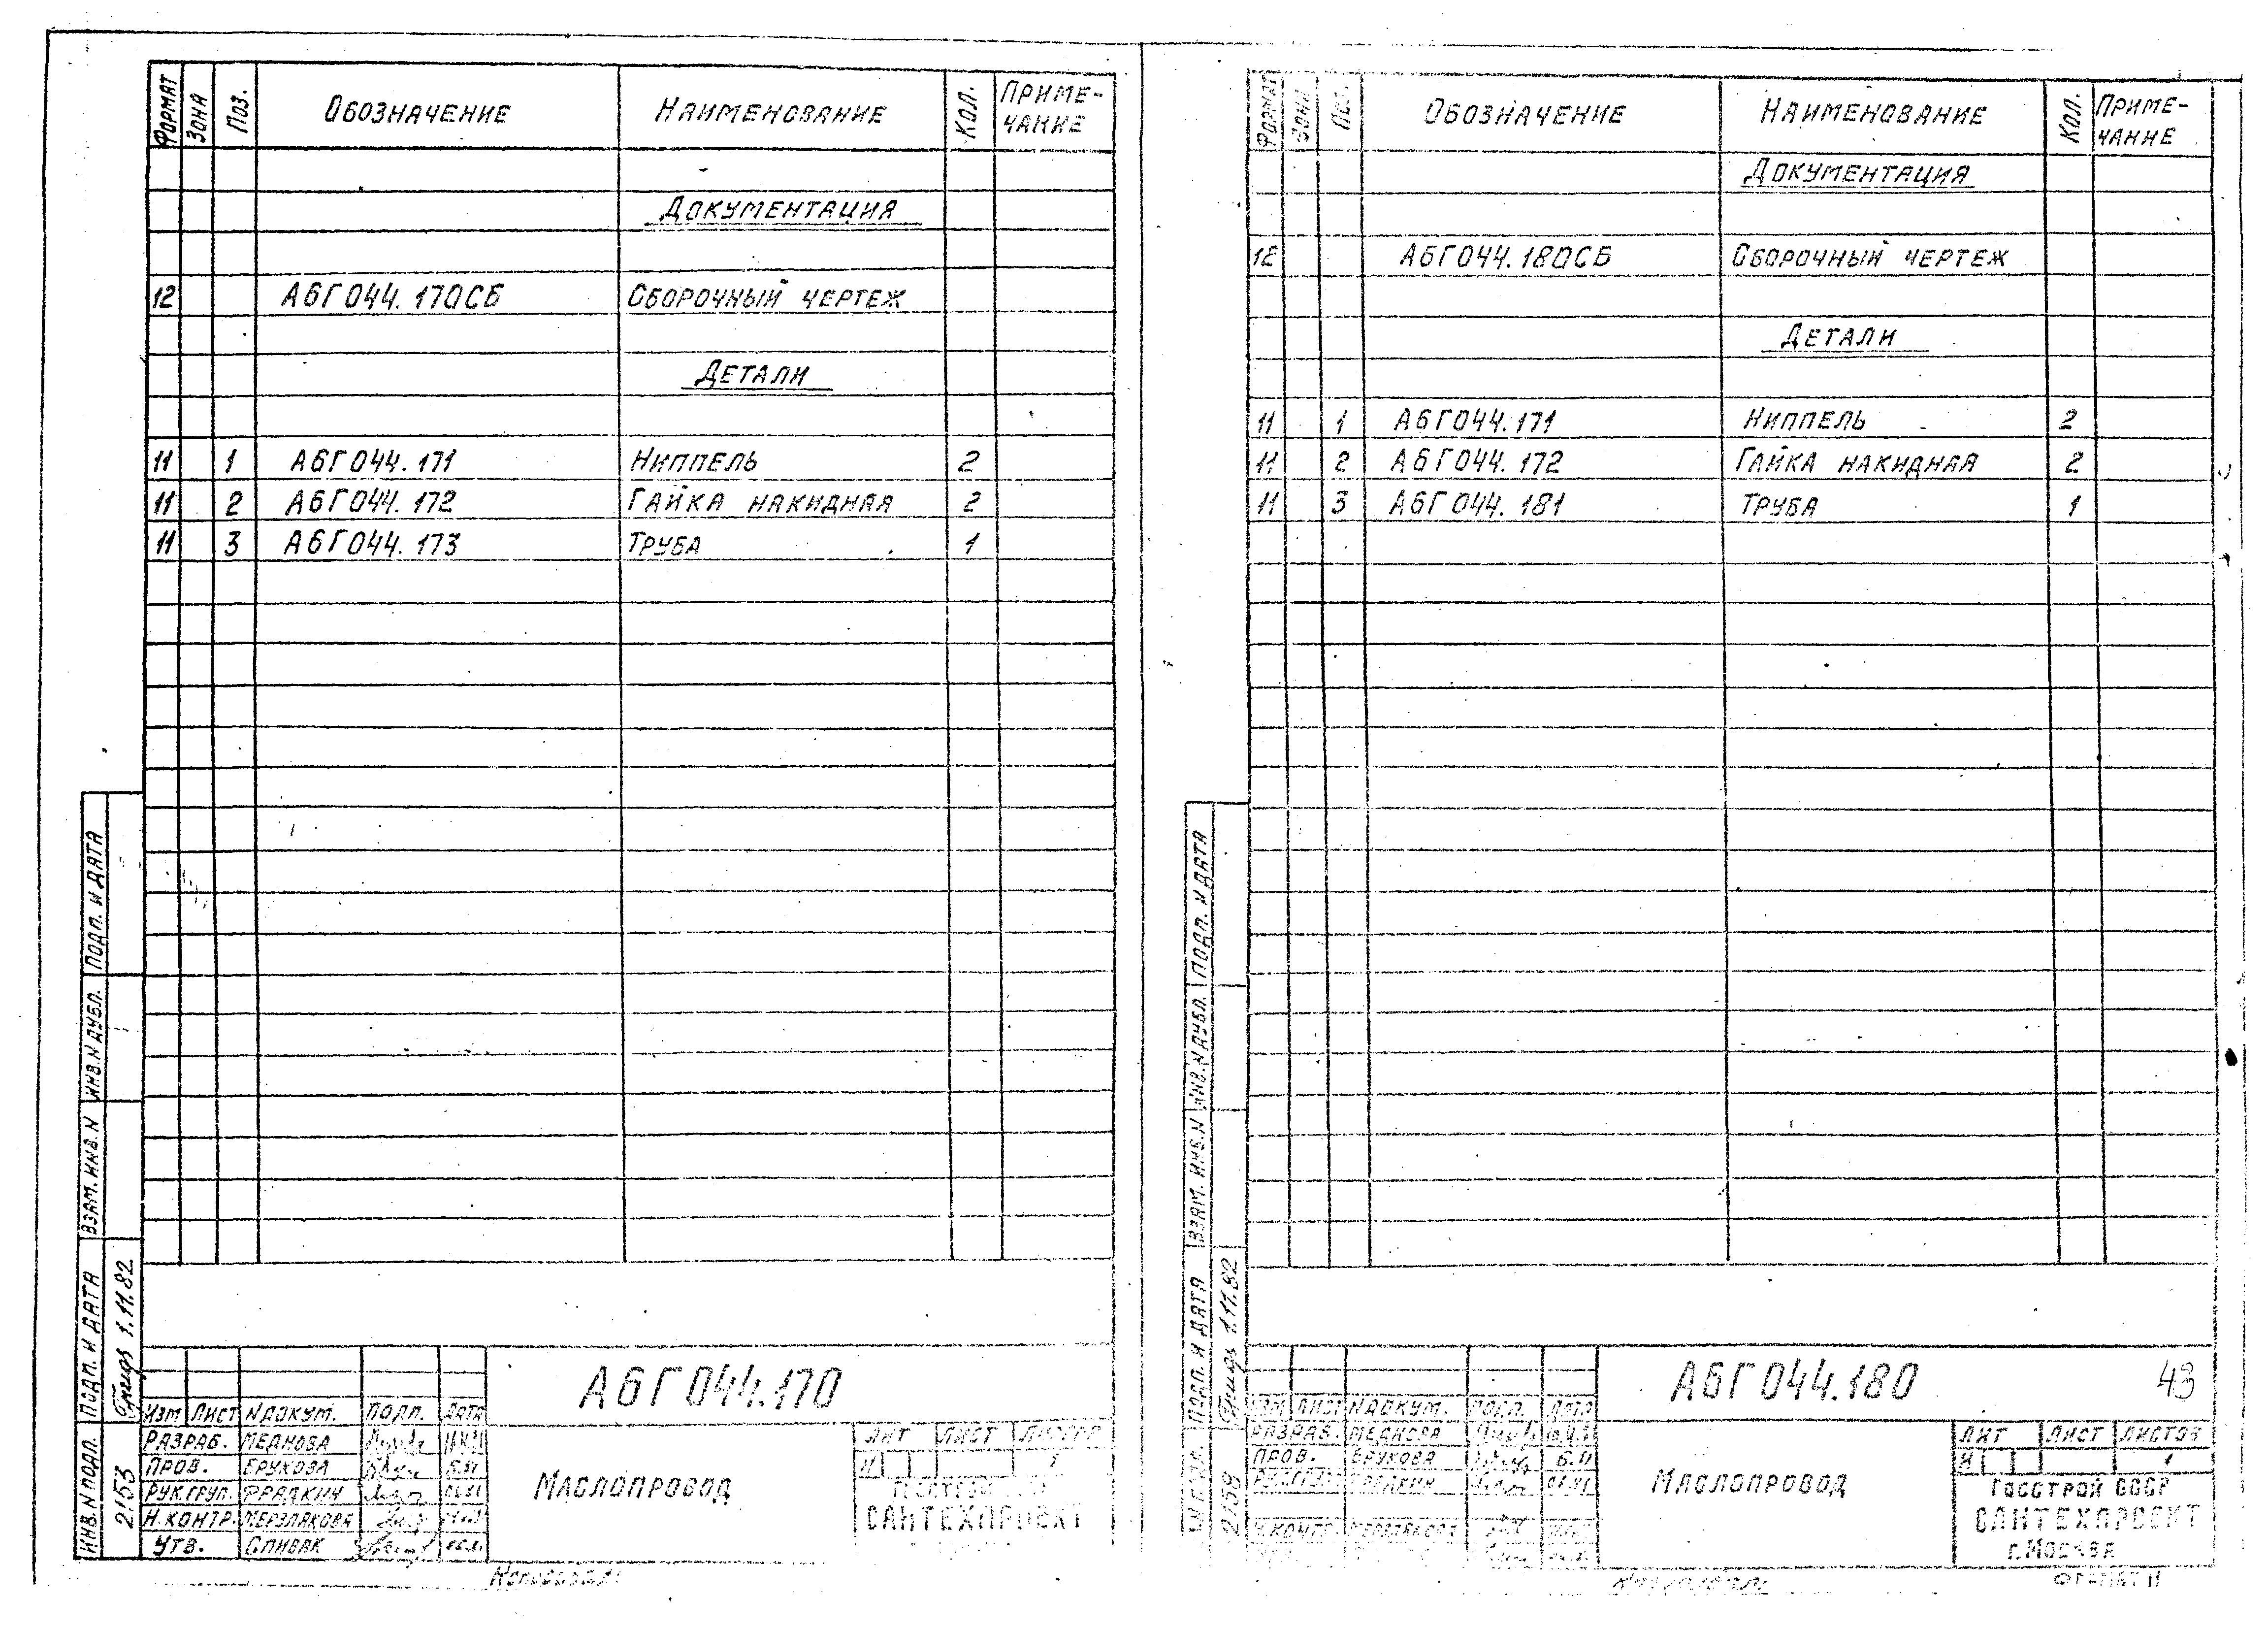 ФОРМАТ ЗОНА ПОЗ. ОБОЗНАЧЕНИЕ НАИМЕНОВАНИЕ КОЛ. ПРИМЕ-ЧАНИЕ
ДОКУМЕНТАЦИЯ
12 А6Г044.170СБ СБОРОЧНЫЙ ЧЕРТЕЖ
ДЕТАЛИ
11 1 А6Г044.171 НИППЕЛЬ 2
11 2 А6Г044.172 ГАЙКА НАКИДНАЯ 2
11 3 А6Г044.173 ТРУБА 1
ПОДП. И ДАТА
ИНВ.N ДУБЛ.
ВЗАМ. ИНВ.N
ПОДП. И ДАТА 1.11.82
ИНВ.N ПОДЛ. 2153
А6Г044.170
ИЗМ ЛИСТ N ДОКУМ. ПОДП. ДАТА
РАЗРАБ. МЕДНОВА
ПРОВ. БРУКОВА
РУК.ГРУП. ФРАДКИН
Н.КОНТР. МЕРЗЛЯКОВА
УТВ. СПИВАК
МАСЛОПРОВОД
ЛИТ ЛИСТ
И 1
САНТЕХПРОЕКТ
Копировал
ФОРМАТ ЗОНА ПОЗ. ОБОЗНАЧЕНИЕ НАИМЕНОВАНИЕ КОЛ. ПРИМЕ-ЧАНИЕ
ДОКУМЕНТАЦИЯ
12 А6Г044.180СБ СБОРОЧНЫЙ ЧЕРТЕЖ
ДЕТАЛИ
11 1 А6Г044.171 НИППЕЛЬ 2
11 2 А6Г044.172 ГАЙКА НАКИДНАЯ 2
11 3 А6Г044.181 ТРУБА 1
ПОДП. И ДАТА
ИНВ.N ДУБЛ.
ВЗАМ. ИНВ.N
ПОДП. И ДАТА 1.11.82
А6Г044.180 43
ИЗМ ЛИСТ N ДОКУМ. ПОДП. ДАТА
РАЗРАБ. МЕДНОВА
ПРОВ. БРУКОВА
МАСЛОПРОВОД
ЛИТ ЛИСТ ЛИСТОВ
И 1
ГОССТРОЙ СССР
САНТЕХПРОЕКТ
г. МОСКВА
ФОРМАТ 11